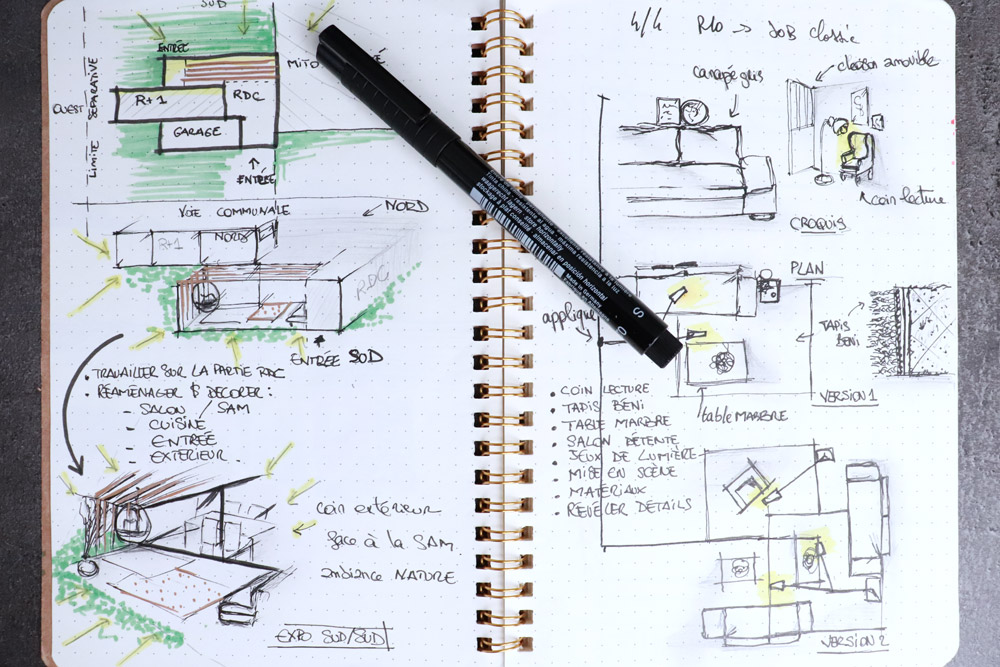 SUD
ENTRÉE
MITO
OUEST
LIMITE SEPARATIVE
R+1
RDC
GARAGE
ENTRÉE
VOIE COMMUNALE
NORD
R+1
NORD
RDC
ENTRÉE SUD
• TRAVAILLER SUR LA PARTIE RDC
• RÉAMÉNAGER & DECORER :
- SALON / SAM
- CUISINE
- ENTRÉE
- EXTERIEUR.
coin extérieur
face à la SAM.
ambiance NATURE
EXPO SUD/SUD
4/4 R10 -> JOB classic
canapé gris
cloison amovible
coin lecture
CROQUIS
PLAN
applique
TAPIS BENI
VERSION 1
table MARBRE
• COIN LECTURE
• TAPIS BÉNI
• TABLE MARBRE
• SALON DÉTENTE
• JEUX DE LUMIÈRE
• MISE EN SCÈNE
• MATÉRIAUX
• REVELER DETAILS
VERSION 2
store horizontally
almacenar en posición horizontal
S